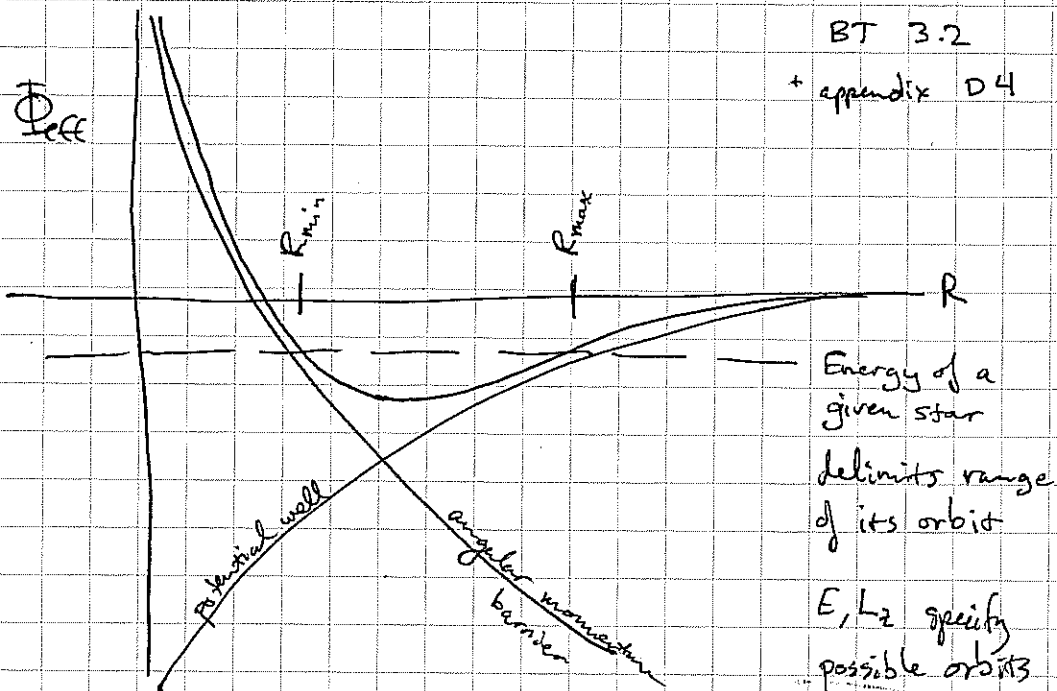 BT 3.2
+ appendix D4
Φeff
Rmin
Rmax
R
Energy of a
given star
delimits range
of its orbit
E, Lz specify
possible orbits
potential well
angular momentum
barrier